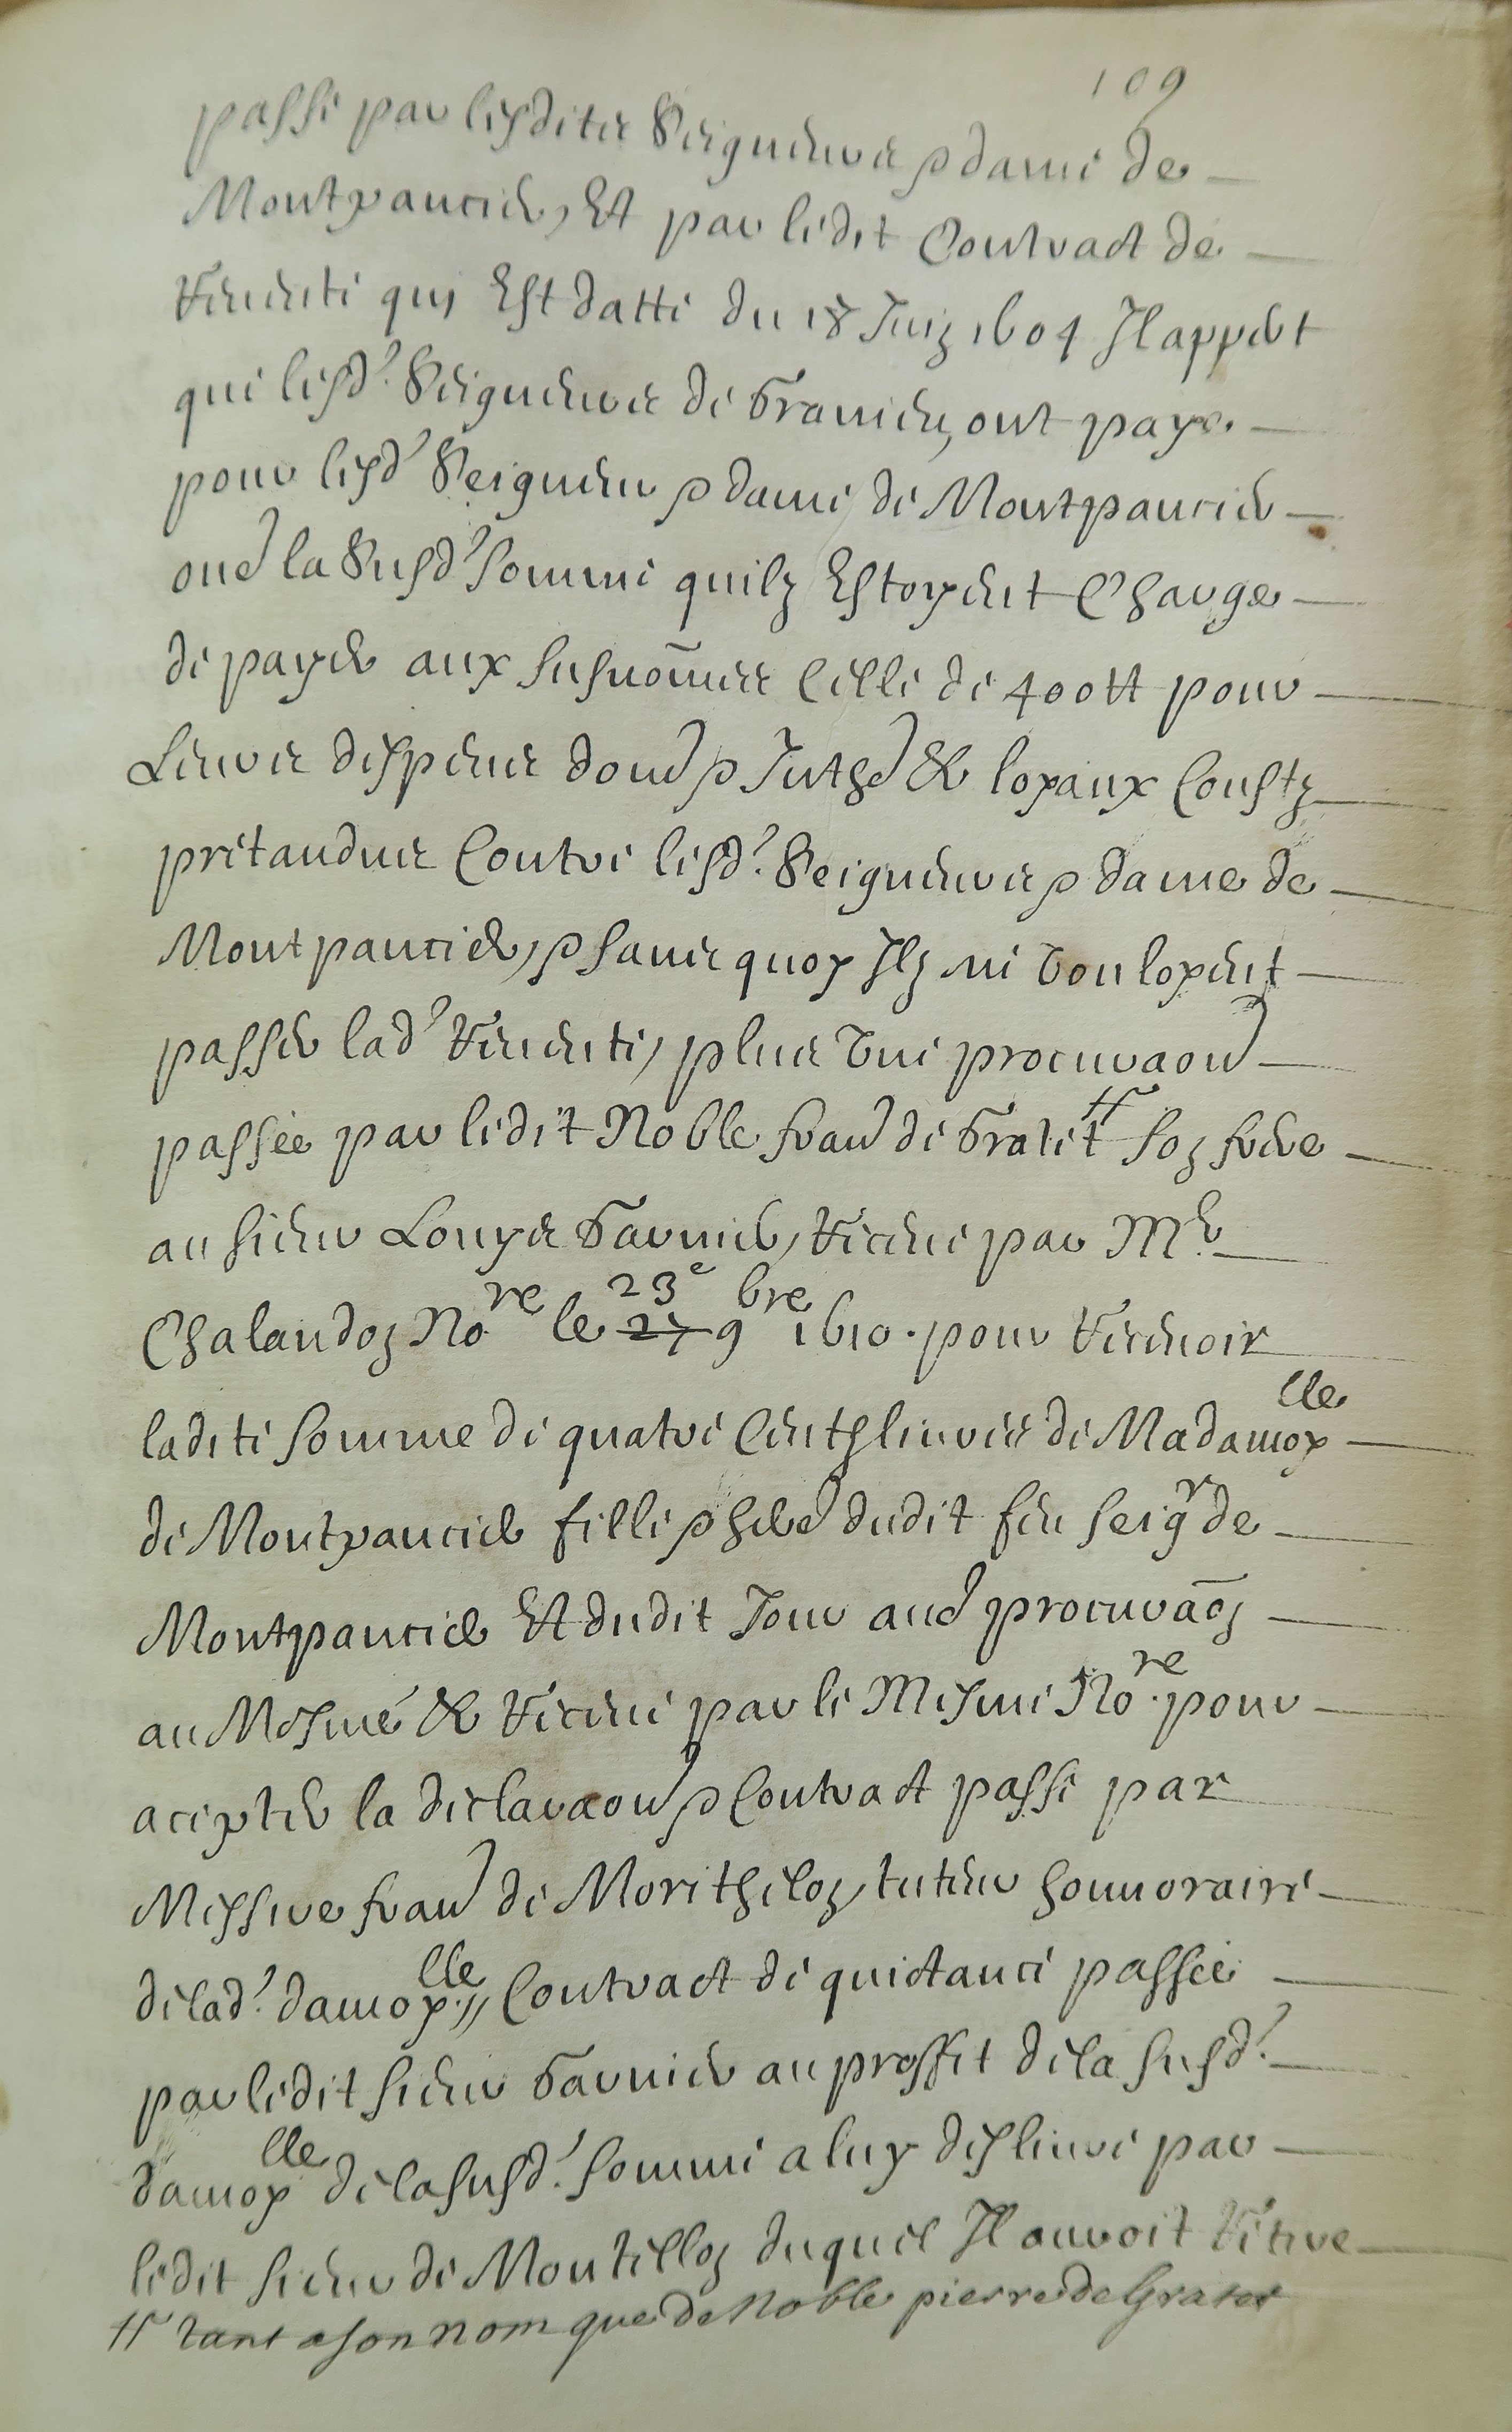 109
passé par lesdites Seigneurs & dame de
Montpancier, Et par ledit Contract de
Revente qui Est datté du 18 Juin 1604 Il appert
que lesd. Seigneurs de ont payé
pour lesd. Seigneur & dame de Montpancier
oud la Susd. somme quilz Estoyent Chargé
de payer aux susnommés Celle de 400 tt pour
Leurs despens & loyaux Coustz
prétandus Contre lesd. Seigneurs & dame de
Montpancier, & sans quoy Ilz ne vouloyent
passer lad. Revente, plus une procuraon
passée par ledit Noble fran de Gratet soz frere
au sieur Louys Garnier, Receue par Me
Chalandoz Nore le 27 23e 9bre 1610. pour Recevoir
ladite somme de quatre Centz livres de Madamoylle
de Montpancier fille & hered dudit feu seigr de
Montpancier Et dudit Jour aud procuraoz
au Mesme & Receue par le Mesme Nore pour
acepter la declaraon & Contract passé par
Messire fran de Moritheloz, tuteur honnoraire
de lad. damoylle // Contract de quictance passée
par ledit sieur Garnier au proffit de la susd.
damoylle de la susd. somme a luy deslivré par
ledit sieur de Montelloz duquel Il auroit Retire
tt tant a son nom que de Noble pierre de Gratet